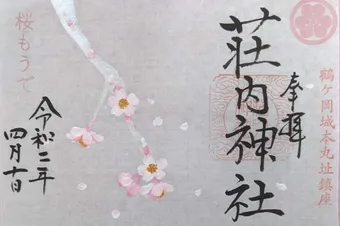 鶴ヶ岡城本丸址鎮座
奉拝
荘内神社
桜もうで
令和二年
四月十日